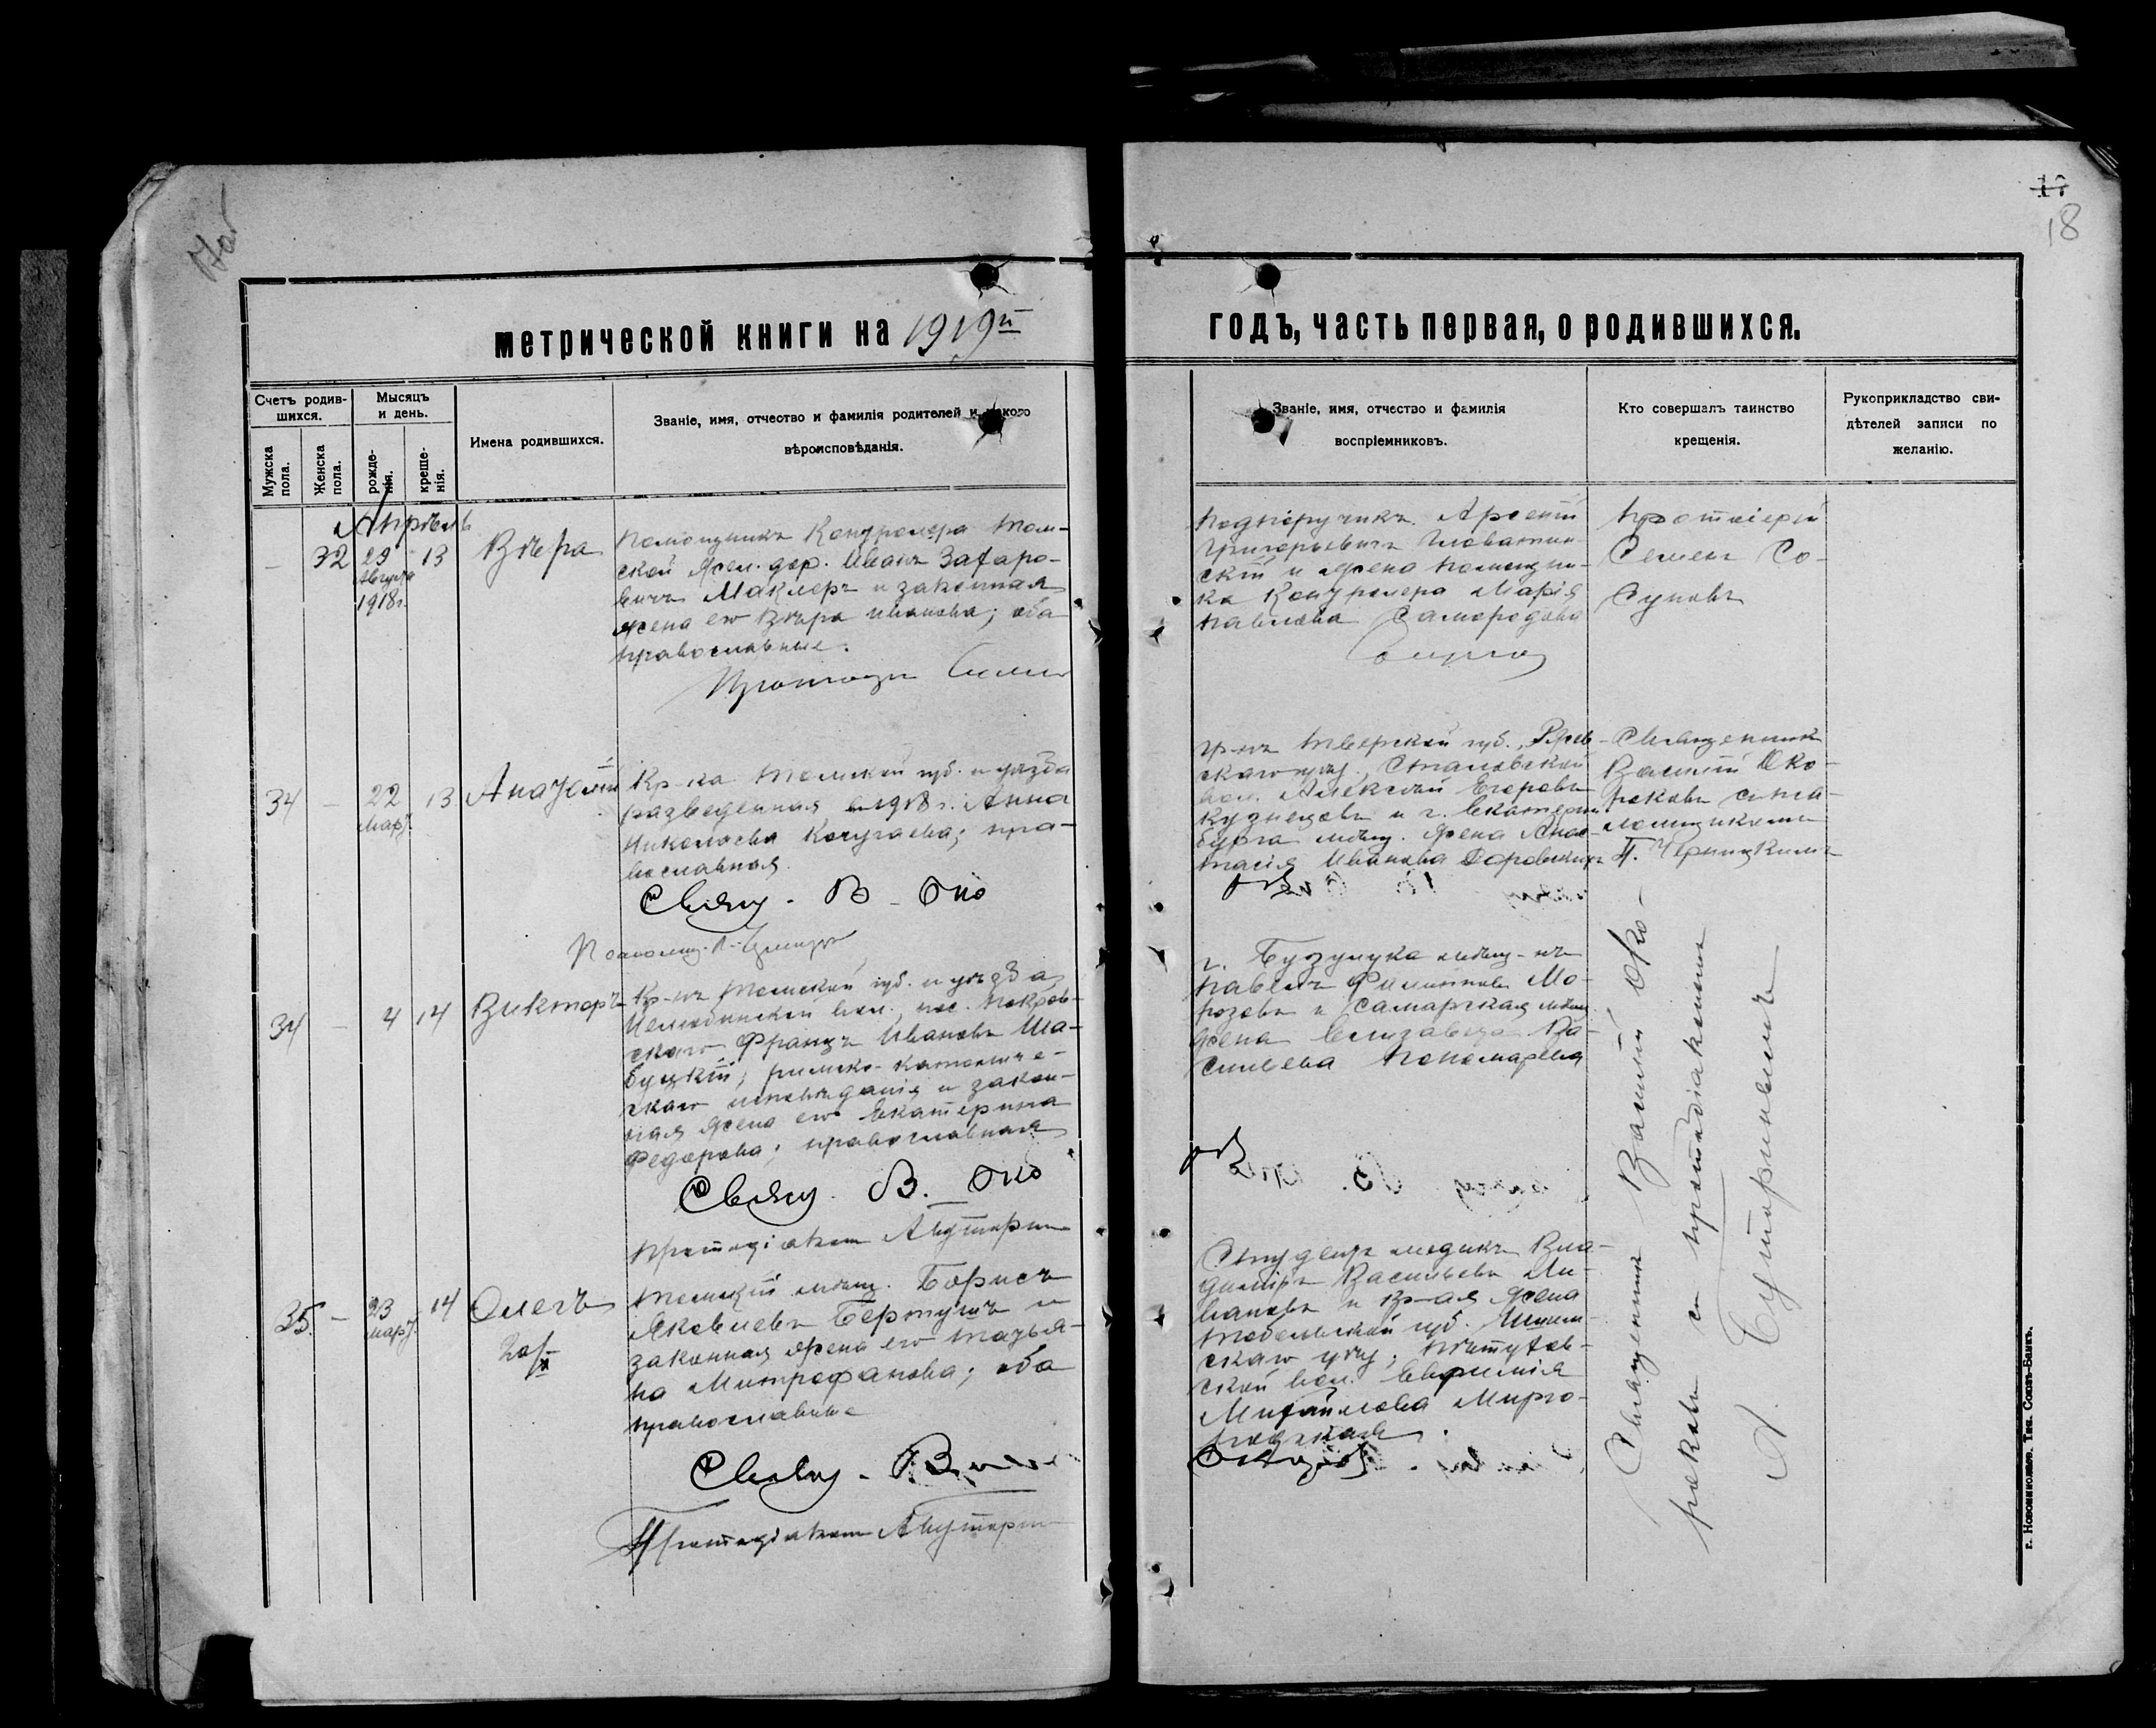 18
метрической книги на 1919й
годъ, часть первая, о родившихся.
Счетъ родив-
шихся.
Мужска
пола.
Женска
пола.
Мѣсяцъ
и день.
рожде-
нія.
креще-
нія.
Имена родившихся.
Званіе, имя, отчество и фамилія родителей и какого
вѣроисповѣданія.
Званіе, имя, отчество и фамилія
воспріемниковъ.
Кто совершалъ таинство
крещенія.
Рукоприкладство сви-
дѣтелей записи по
желанію.
Апрѣль
— 32 29 13 Вѣра
Августа
1918г.
Помощникъ Контролера Том-
ской жел. дор. Иванъ Захаро-
вичъ Маклеръ и законная
жена его Вѣра Иванова; оба
православные.
Подпоручикъ Арсеній
Григорьевичъ
скій и жена помощни-
ка Контролера Марія
Павлова Самородова
Протоіерей
Семенъ Со-
суновъ
34 — 22 13 Анатолій
март.
Кр-ка Томской губ. и уѣзда
разведенная въ 1918 г. Анна
Николаева Кочугаева; пра-
вославная.
Свящ. В. Око
гр-нъ Тверской губ., Ржев-
скаго уѣзд.,
вол. Алексѣй Егоровъ
Кузнецовъ и г. Екатерин-
бурга мѣщ. жена Анас-
тасія Иванова
Священникъ
Василій Око-
роковъ с пса-
ломщикомъ
П.
34 — 4 14 Викторъ
Кр-нъ Томской губ. и уѣзда,
вол., пос. Покров-
скаго Францъ Ивановъ Ша-
буцкій; римско-католиче-
скаго исповѣданія и закон-
ная жена его Екатерина
Федорова; православная
Свящ. В. Око
Протодіаконъ
г. Бузулука мѣщ-нъ
Павелъ Филипповъ Мо-
розовъ и Самарская мѣщ.
жена Елизавета Ва-
сильева Пономарева
35. — 23 14 Олегъ
март.
Томскій мѣщ. Борисъ
Яковлевъ и
законная жена его Татья-
на Митрофанова; оба
православные
Свящ. В.
Протодіаконъ
Студентъ медикъ Вла-
диміръ Васильевъ Ли-
вановъ и кр-ая жена
Тобольской губ. Ишим-
скаго уѣзд.,
ской вол. Евфимія
Михайлова Мирго-
родская.
Священникъ Василій Око-
роковъ съ протодіакономъ
А.
г. Новониколаев. Тип. Союз-Банкъ.